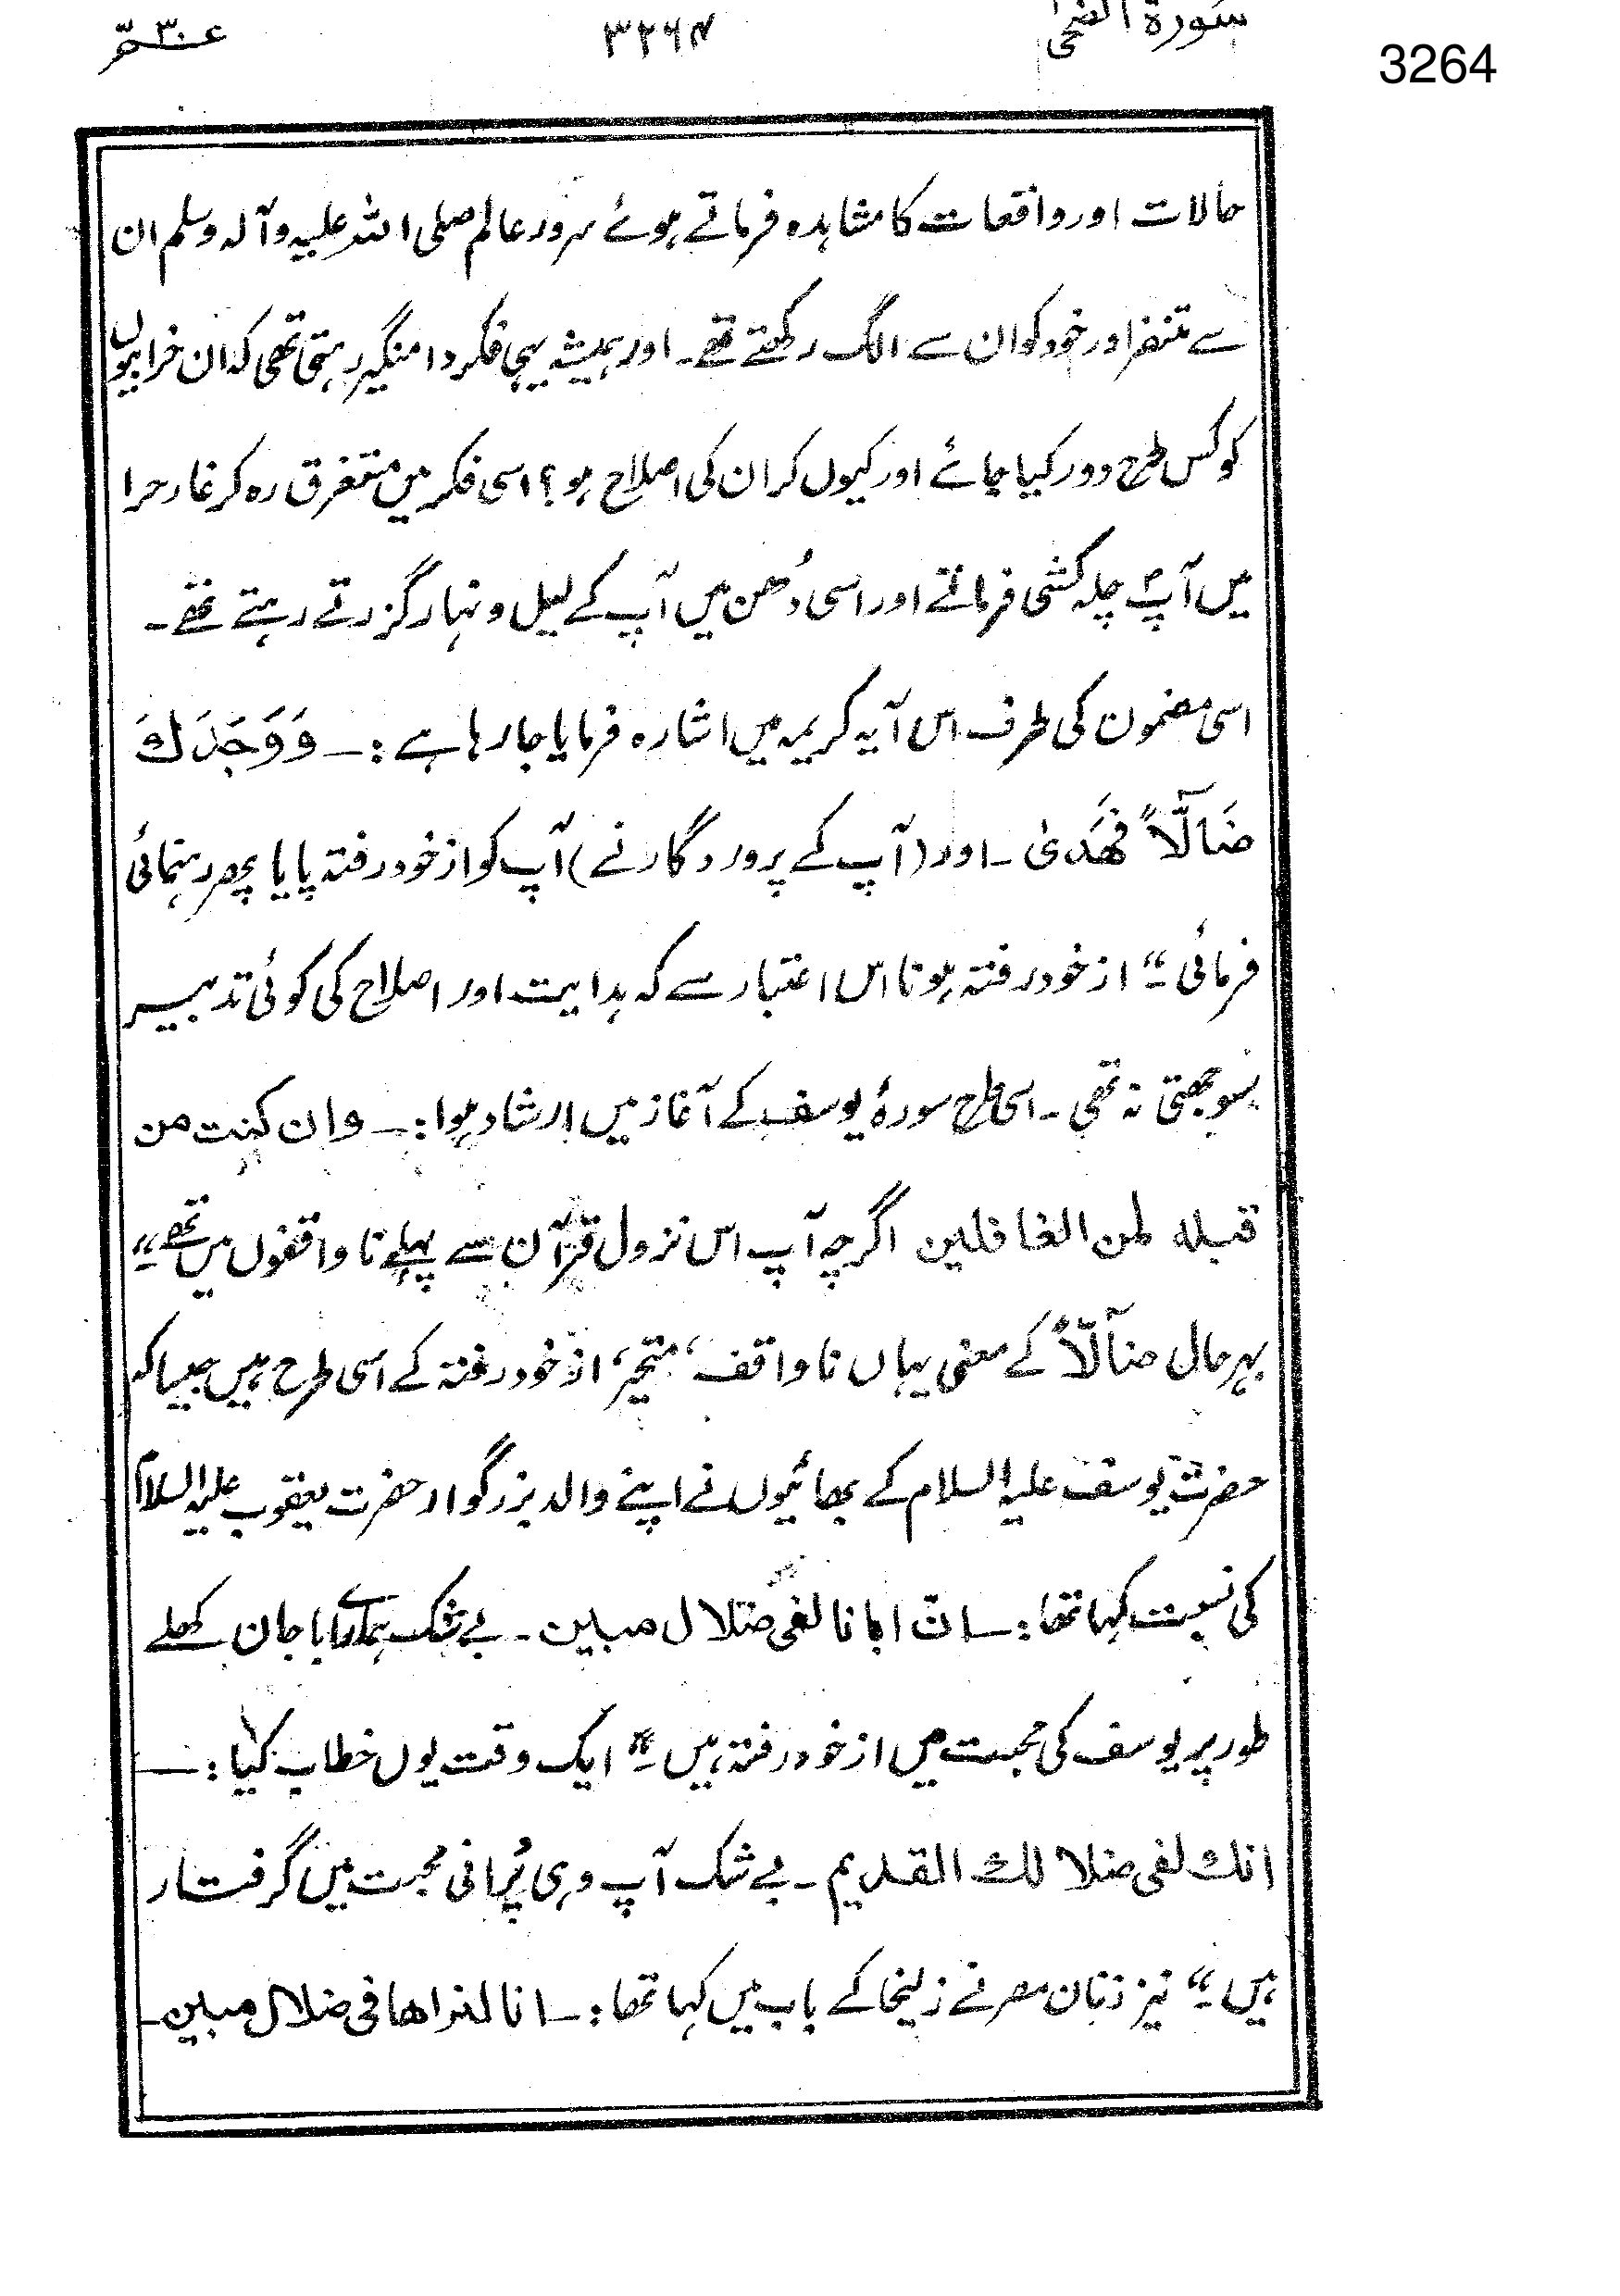 سورة الضحى
۳۲۶۴
عم ۳۰
3264
حالات اور واقعات کا مشاہدہ فرماتے ہوئے سرور عالم صلی اللہ علیہ وآلہ وسلم ان
سے متنفر اور خود کو ان سے الگ رکھتے تھے۔ اور ہمیشہ یہی فکر دامنگیر رہتی تھی کہ ان خرابیوں
کو کس طرح دور کیا جائے اور کیوں کر ان کی اصلاح ہو؟ اسی فکر میں متغرق رہ کر غار حرا
میں آپؐ چلہ کشی فرماتے اور اسی دُھن میں آپ کے لیل و نہار گزرتے رہتے تھے۔
اسی مضمون کی طرف اس آیہ کریمہ میں اشارہ فرمایا جا رہا ہے :۔ وَوَجَدَكَ
ضَآلّاً فَهَدىٰ ۔ اور (آپ کے پروردگار نے) آپ کو از خود رفتہ پایا پھر رہنمائی
فرمائی ۔" از خود رفتہ ہونا اس اعتبار سے کہ ہدایت اور اصلاح کی کوئی تدبیر
سوجھتی نہ تھی ۔ اسی طرح سورۂ یوسف کے آغاز میں ارشاد ہوا :۔ وان كنت من
قبله لمن الغافلين اگرچہ آپ اس نزول قرآن سے پہلے نا واقفوں میں تھے ۔"
بہر حال ضآلّاً کے معنی یہاں نا واقف، متحیر، از خود رفتہ کے اسی طرح ہیں جیسا کہ
حضرت یوسف علیہ السلام کے بھائیوں نے اپنے والد بزرگوار حضرت یعقوب علیہ السلام
کی نسبت کہا تھا :۔ انّ ابانا لفى ضلال مبين ۔ بے شک ہمارے ابا جان کھلے
طور پر یوسف کی محبت میں از خود رفتہ ہیں ۔" ایک وقت یوں خطاب کیا :۔
انك لفى ضلالك القديم ۔ بے شک آپ وہی پُرانی محبت میں گرفتار
ہیں ۔" نیز زنان مصر نے زلیخا کے باب میں کہا تھا :۔ انا لنراها فى ضلال مبين ۔